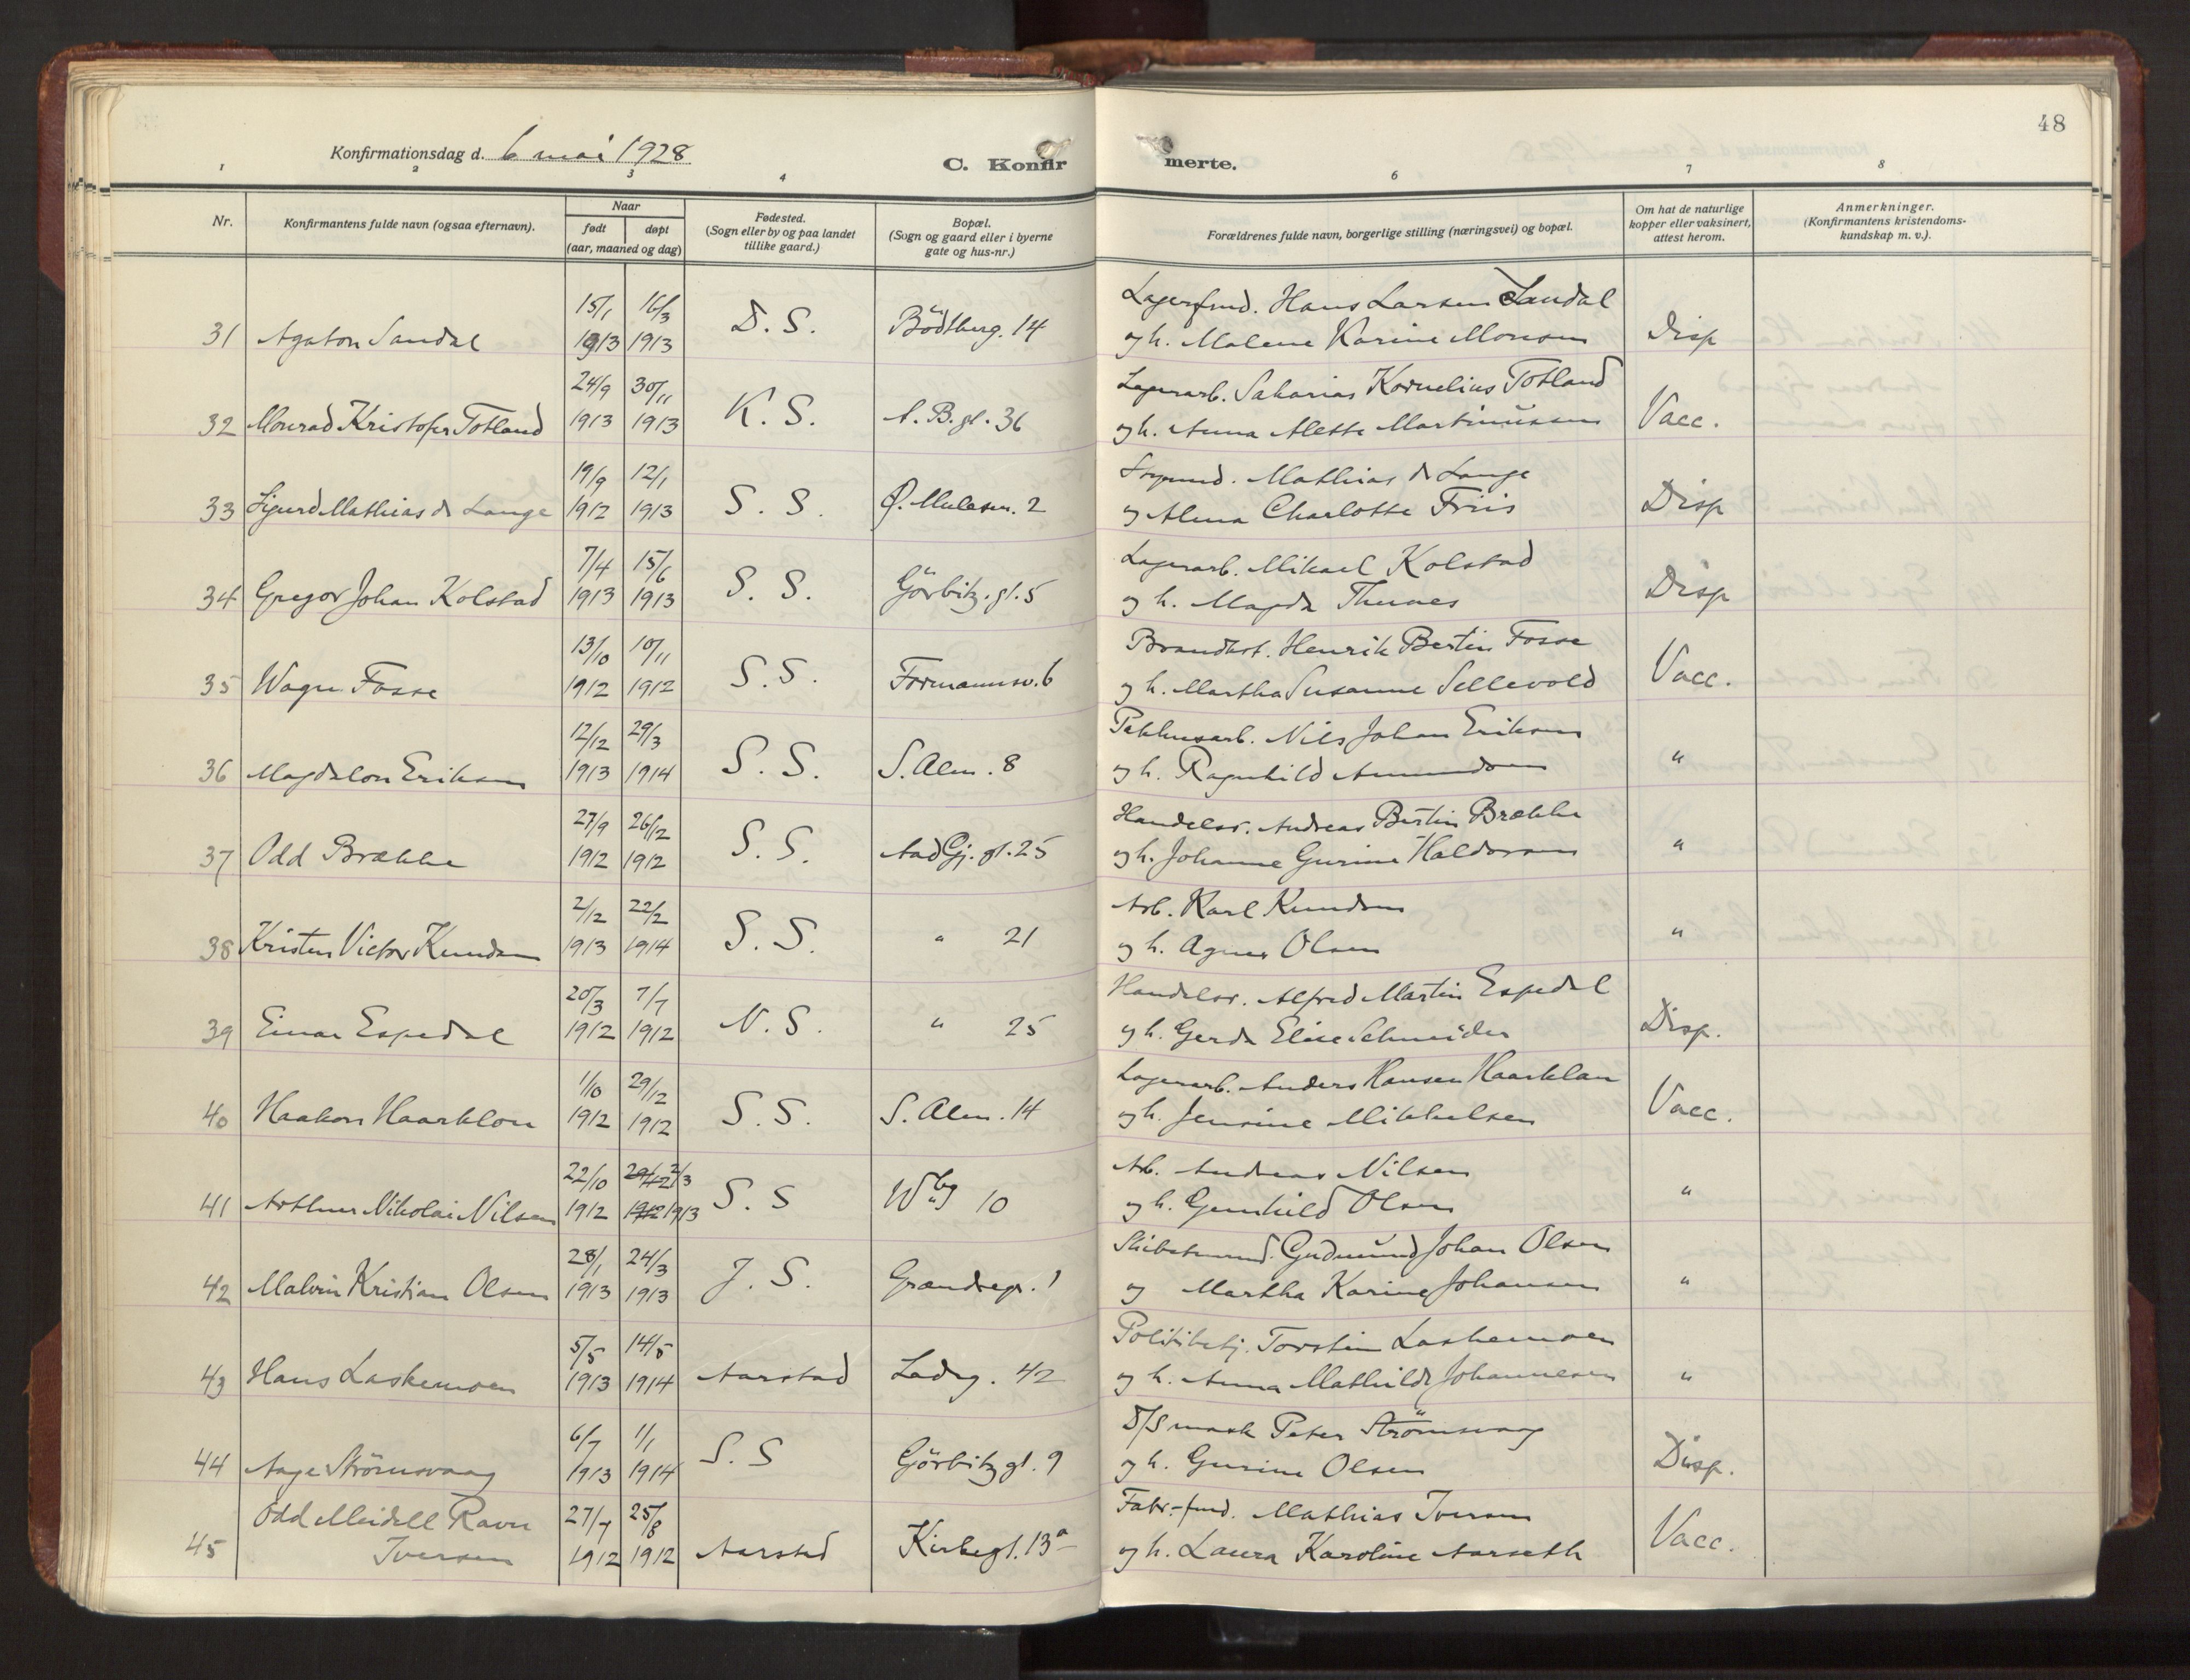 48
Konfirmationsdag d. 6 mai 1928
C. Konfirmerte.
1 2 3 4 6 7 8
Nr.
Konfirmantens fulde navn (ogsaa efternavn).
Naar
født døpt
(aar, maaned og dag)
Fødested.
(Sogn eller by og paa landet
tillike gaard.)
Bopæl.
(Sogn og gaard eller i byerne
gate og hus-nr.)
Forældrenes fulde navn, borgerlige stilling (næringsvei) og bopæl.
Om hat de naturlige
kopper eller vaksinert,
attest herom.
Anmerkninger.
(Konfirmantens kristendoms-
kundskap m. v.).
15/1 16/3 D. S. Bödtkerg. 14 Lagerfmd. Hans Larsen Sandal
31 Agaton Sandal 1913 1913 og h. Malene Karine Monsen Disp
24/9 30/11 K. S. A. B. gt. 36 Lagerarb. Sakarias Kornelius Totland
32 Monrad Kristofer Totland 1913 1913 og h. Anna Alette Martinussen Vacc.
19/9 12/1 S. S. Ø. Mulesm. 2 Mathias de Lange
33 Sigurd Mathias de Lange 1912 1913 og Alma Charlotte Friis Disp
7/4 15/6 S. S. Görbitz. gt. 5 Lagerarb. Mikael Kolstad
34 Gregor Johan Kolstad 1913 1913 og h. Magda Thunes Disp
13/10 10/11 S. S. Formannsv. 6 Brandkst. Henrik Bertin Fosse
35 Wagn Fosse 1912 1912 og h. Martha Susanne Sellevold Vacc.
12/12 29/3 S. S. S. Alm. 8 Pakhusarb. Nils Johan Eriksen
36 Magdalon Eriksen 1913 1914 og h. Ragnhild Amundsen "
27/9 26/12 S. S. Aad Gj. gt. 25 Handelsr. Andreas Bertin Brække
37 Odd Brække 1912 1912 og h. Johanne Gurine Haldorsen "
2/12 22/2 S. S. " 21 Arb. Karl Knudsen
38 Kristen Victor Knudsen 1913 1914 og h. Agnes Olsen "
20/3 7/7 N. S. " 25 Handelsr. Alfred Martin Espedal
39 Einar Espedal 1912 1912 og h. Gerda Elise Schneider Disp.
1/10 29/12 S. S. S. Alm. 14 Lagerarb. Anders Hansen Haarklau
40 Haakon Haarklou 1912 1912 og h. Jensine Mikkelsen Vacc.
22/10 29/12 2/3 S. S Wbg 10 Arb. Andreas Nilsen
41 Arthur Nikolai Nilsen 1912 1912 1913 og h. Gunhild Olsen "
28/1 24/3 J. S. Grandsegr. 1 Skibstmmd. Gudmund Johan Olsen
42 Malvin Kristian Olsen 1913 1913 og Martha Karine Johansen "
5/5 14/5 Aarstad Ladrg. 42 Politibetj. Torstein Laskemoen
43 Hans Laskemoen 1913 1914 og h. Anna Mathilde Johannesen "
6/7 1/1 S. S Görbitz gt. 9 D/S mask Peter Strömsvaag
44 Aage Strömsvaag 1913 1914 og h. Gurine Olsen Disp.
Odd Meidell Ravn 27/7 25/8 Aarstad Kirkegt. 13a Fabr.-fmd. Mathias Iversen
45 Iversen 1912 1912 og h. Laura Karoline Aarseth Vacc.